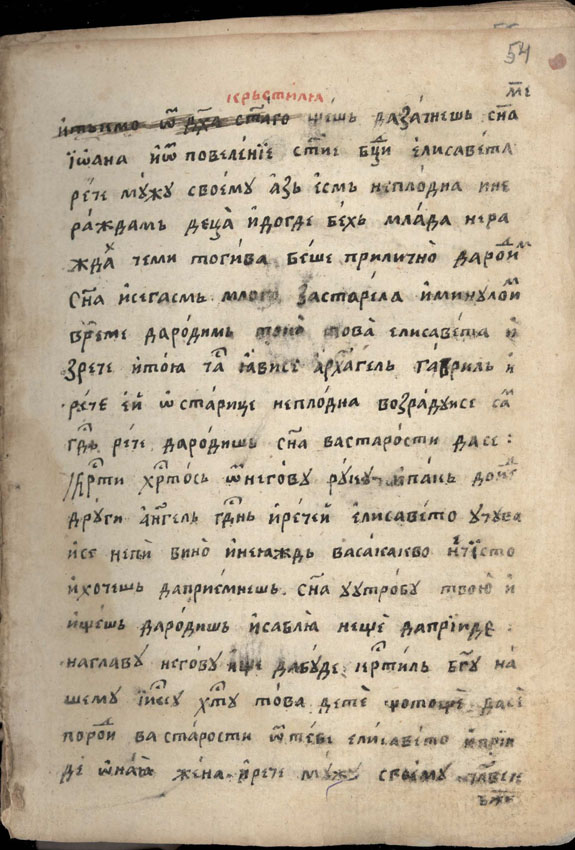 54
крьстилꙗ
и тькмо ѿ дх҃а ст҃аго щешь да зачнешь сн҃а
іѡана и ѿ повеленїе ст҃ие бц҃и елисавета
рече мꙋжꙋ своемꙋ азь есмь неплодна и не
раждамь деца и догде бехь млада не ра
жда чеми тогива беше прилично да роди
сн҃а и сегасмь млого застарела и минꙋло
време да родимь това елисавета и
зрече и тою ꙗви се архаг҃ель гаврилѣ и
рече ей ѡ старице неплодна возрадꙋи се
гд҃ь рече да родишь сн҃а ва старости да се :
крс҃ти хрт҃ось ѿ неговꙋ рꙋкꙋ и пакь
дрꙋги анг҃ель гд҃нь и рече й елисавето ꙋчꙋва
и се не пи вино и не иаждь васакакво нечисто
и хочешь да приемнешь сн҃а ꙋ ꙋтробꙋ твою и
и щешь да родишь и саблꙗ неще да прїиде :
на главꙋ неговꙋ ище да бꙋде крт҃иль бг҃ꙋ на
шемꙋ їис҃ꙋ хт҃ꙋ това дете що то ще да се
породи ва старости ѿ тебе елисавето и прїи
де ѡнаꙗ жена и рече мꙋжꙋ своемꙋ